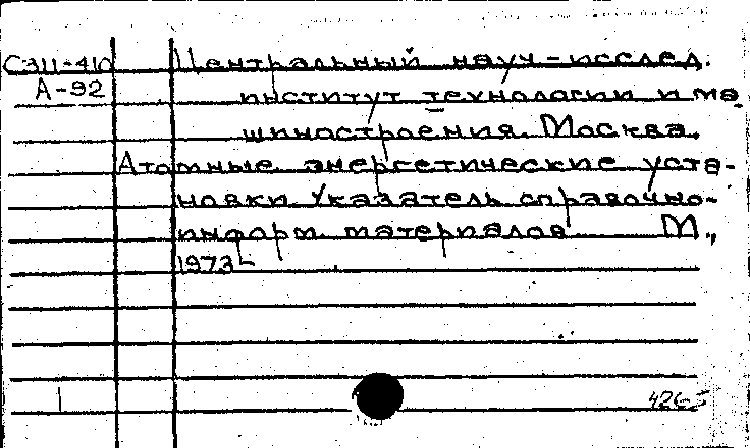 С311-410 Центральный науч-исслед.
А-92 институт технологии и ма
шиностроения. Москва.
Атомные энергетические уста-
новки. Указатель справочно-
информ. материалов М.,
1973-
4265